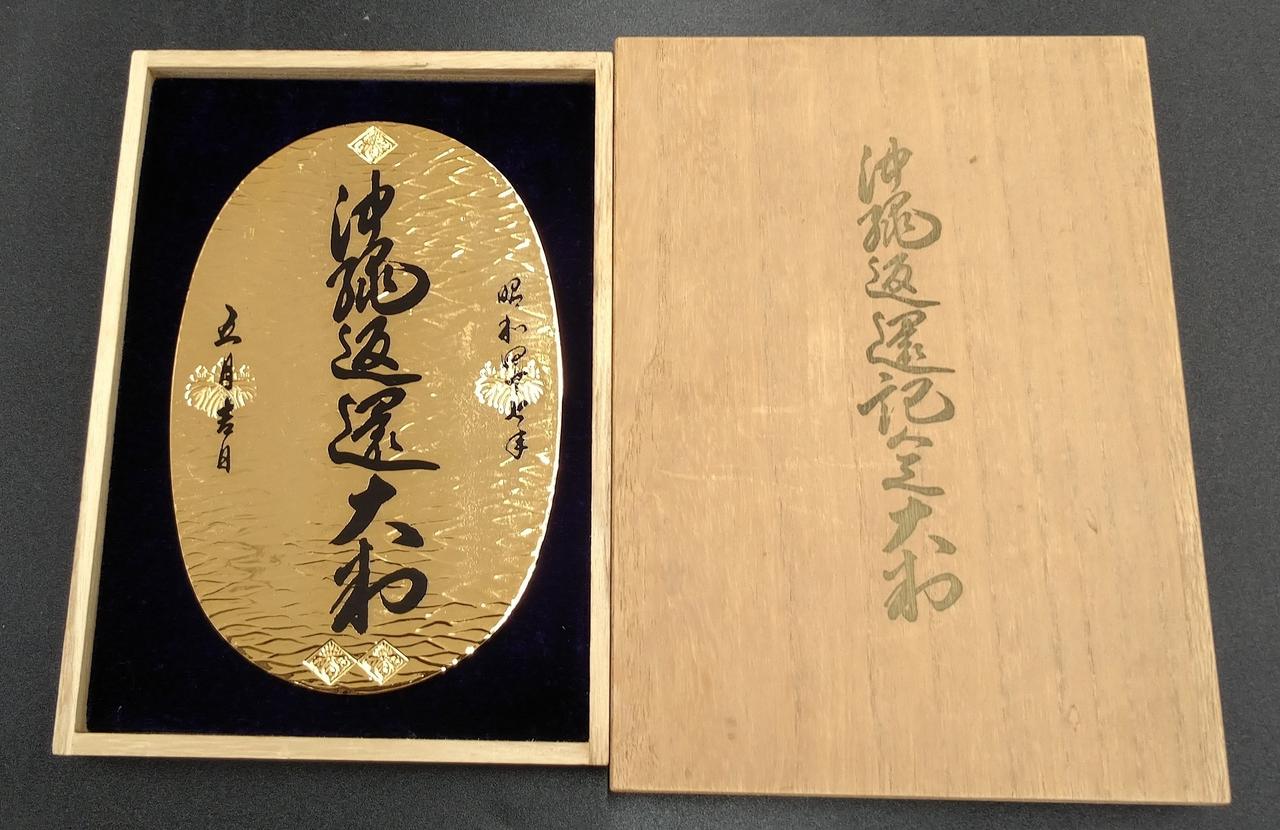 昭和四十七年
沖縄返還大判
五月吉日
沖縄返還記念大判